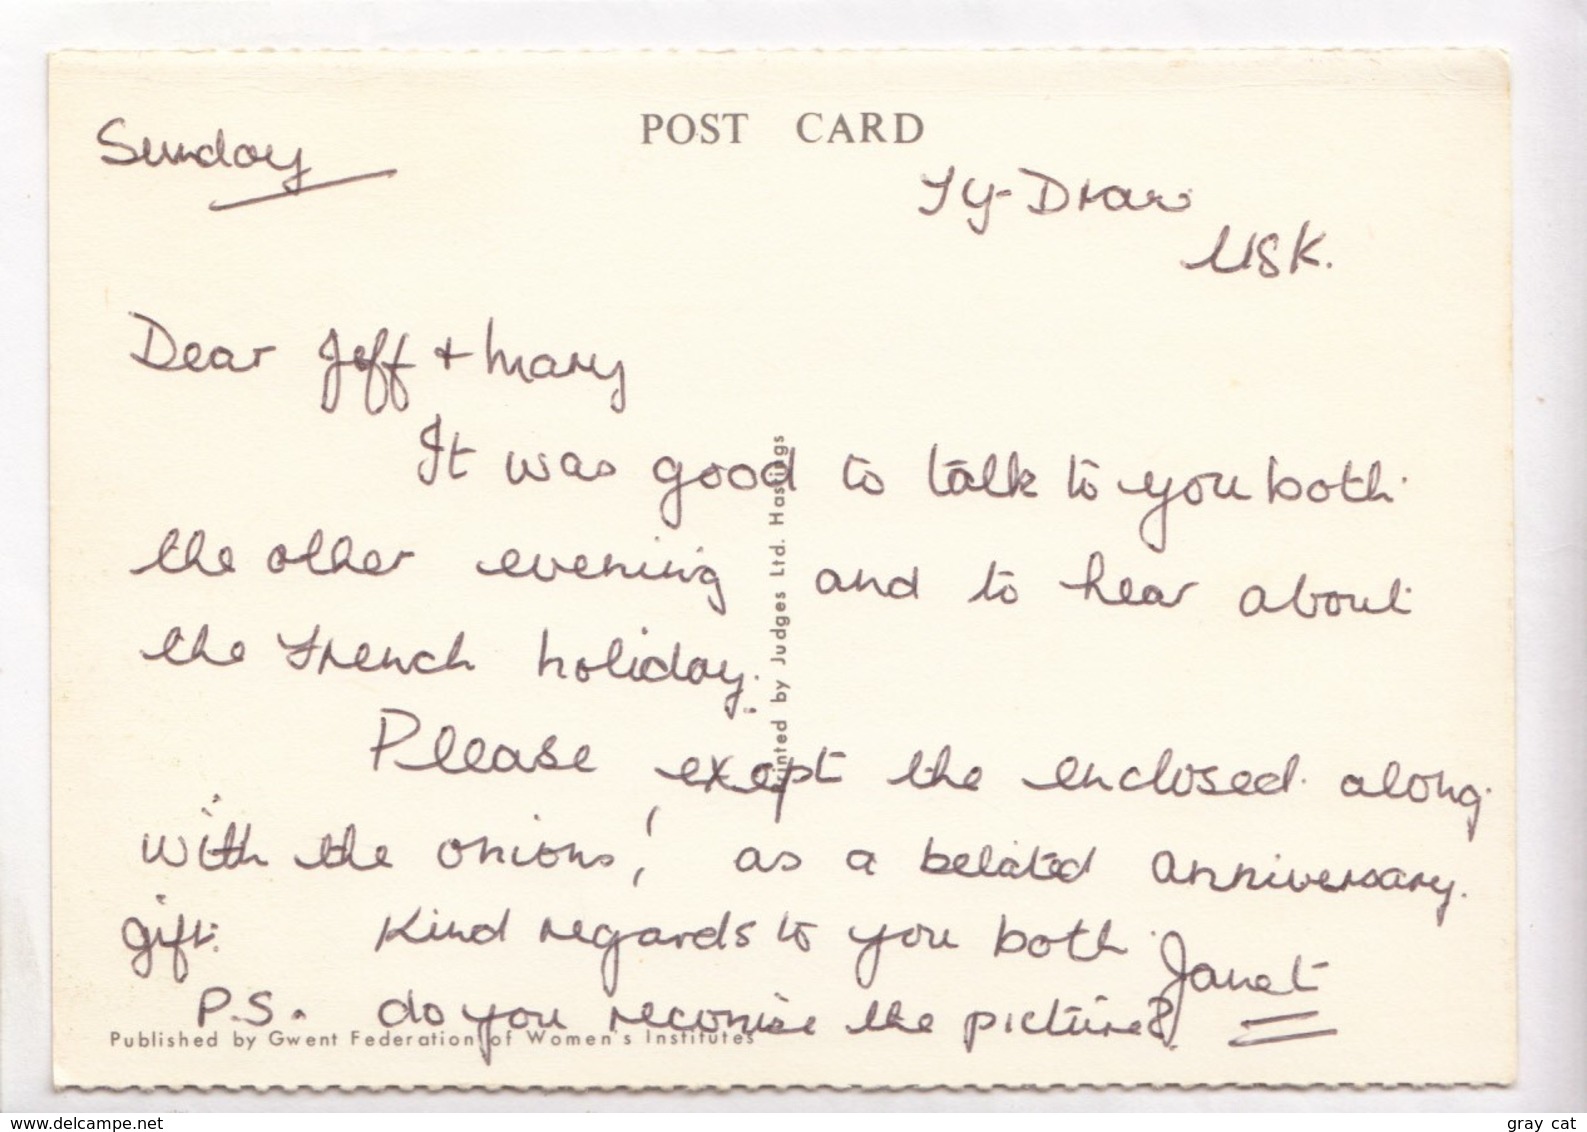 POST CARD
Sunday
Ty-Draw
USK.
Dear Jeff + Mary
It was good to talk to you both
the other evening and to hear about
the French holiday.
Please except the enclosed along
with the onions! as a belated anniversary
gift. Kind regards to you both. Janet
P.S. do you reconise the picture?
Printed by Judges Ltd. Hastings
Published by Gwent Federation of Women's Institutes
www.delcampe.net
gray cat